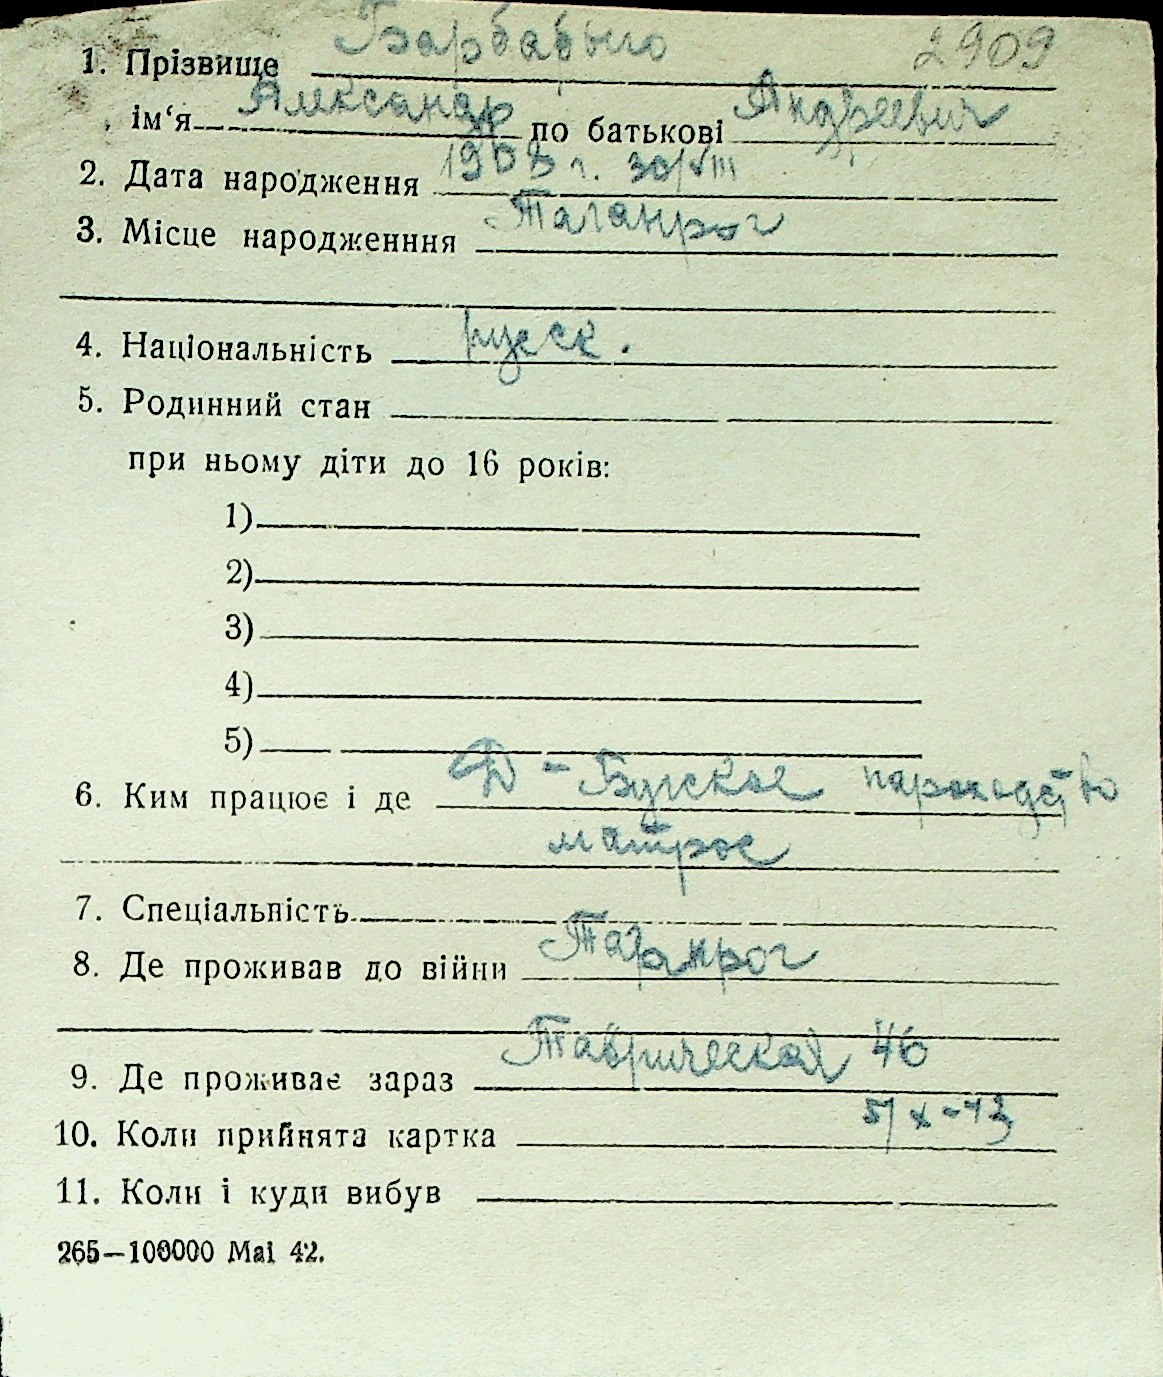 2909
1. Прізвище
ім‘я Александр по батькові Андреевич
2. Дата народження 1908 г. 30/VIII
3. Місце народженння Таганрог
4. Національність русск.
5. Родинний стан
при ньому діти до 16 років:
1)
2)
3)
4)
5)
6. Ким працює і де Д-Бугское пароходство
матрос
7. Спеціальність
8. Де проживав до війни Таганрог
9. Де проживає зараз Таврическая 46
10. Коли прийнята картка 5/X-43
11. Коли і куди вибув
265—100000 Mai 42.